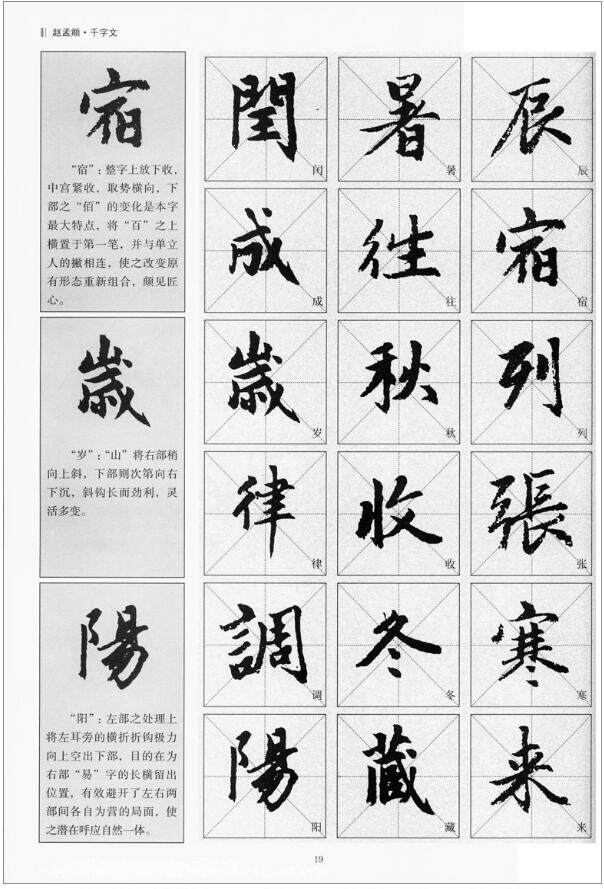 赵孟頫·千字文
宿
“宿”：整字上放下收，
中宫紧收，取势横向，下
部之“佰”的变化是本字
最大特点，将“百”之上
横置于第一笔，并与单立
人的撇相连，使之改变原
有形态重新组合，颇见匠
心。
歲
“岁”：“山”将右部稍
向上斜，下部则次第向右
下沉，斜钩长而劲利，灵
活多变。
陽
“阳”：左部之处理上
将左耳旁的横折折钩极力
向上空出下部，目的在为
右部“易”字的长横留出
位置，有效避开了左右两
部间各自为营的局面，使
之潜在呼应自然一体。
辰
辰
宿
宿
列
列
張
张
寒
寒
来
来
暑
暑
往
往
秋
秋
收
收
冬
冬
藏
藏
閏
闰
成
成
歲
岁
律
律
調
调
陽
阳
19